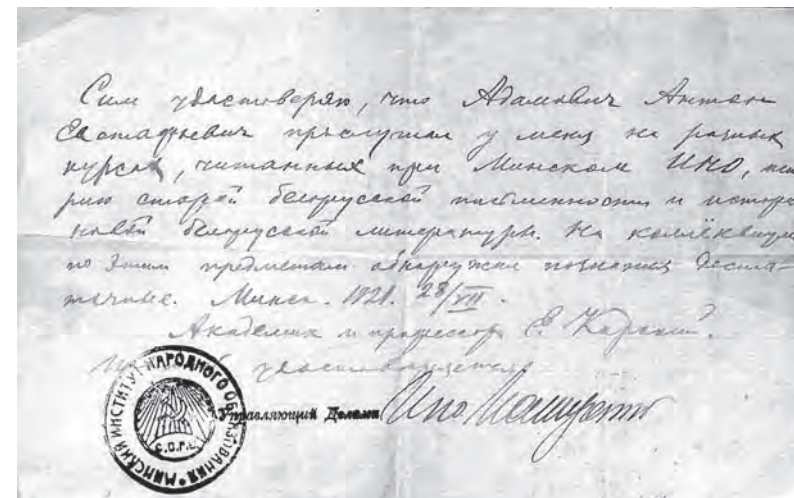 Сим удостоверяю, что Адамович Антон
Евстафиевич прослушал у меня на разных
курсах, читанных при Минском ИНО, исто
рию старой белорусской письменности и историю
новой белорусской литературы. На коллёквиуме
по этим предметам обнаружил познания доста-
точные. Минск. 1921. 28/VII.
Академик и профессор Е. Карский.
удостоверяется
МИНСКИЙ ИНСТИТУТ НАРОДНОГО ОБРАЗОВАНИЯ
Управляющий Делами Ино